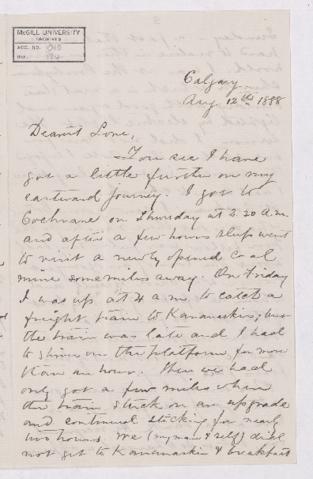 McGILL UNIVERSITY
ARCHIVES
ACC. NO.
REF.
Calgary
Aug. 12th 1888
Dearest Love,
You see I have
got a little further on my
eastward journey. I got to
Cochrane on Thursday at 2.20 a.m.
and after a few hours sleep went
to visit a newly opened coal
mine some miles away. On Friday
I was up at 4 a.m. to catch a
freight train to Kananaskis; but
the train was late and I had
to shiver on the platform for more
than an hour. Then we had
only got a few miles when
the train stuck on an upgrade
and continued sticking for nearly
two hours. We (my man & self) did
not get to Kananaskis & breakfast